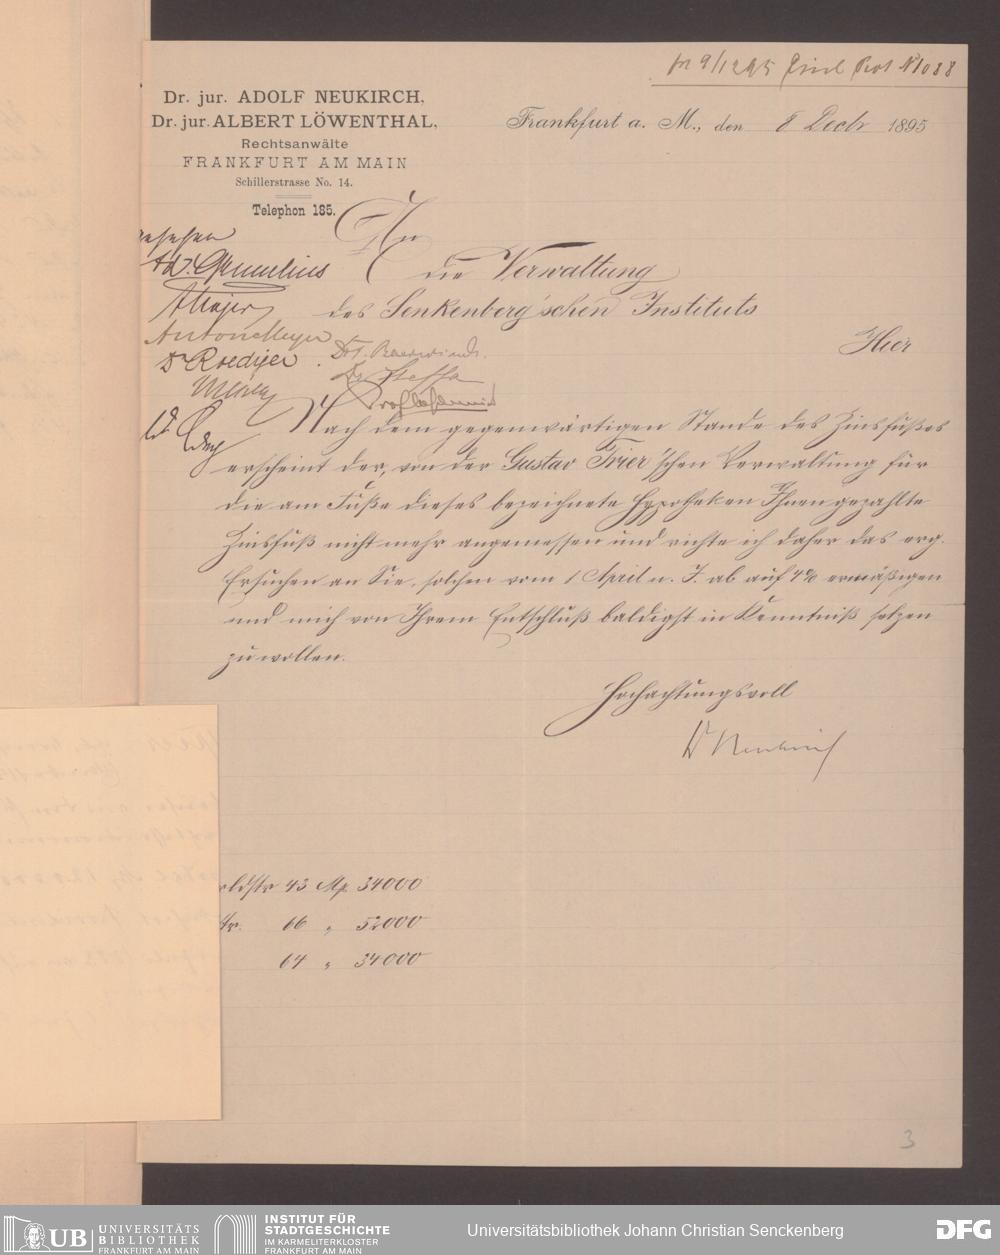 9/12 95 Prot N 1088
Dr. jur. ADOLF NEUKIRCH,
Dr. jur. ALBERT LÖWENTHAL,
Rechtsanwälte
FRANKFURT AM MAIN
Schillerstrasse No. 14.
Telephon 185.
Frankfurt a. M., den 8 Decbr 1895
gesehen
An
die Verwaltung
des Senkenberg'schen Instituts
Hier
Anton Meyer
Dr Roediger
Nach dem gegenwärtigen Stande des Zinsfußes
erscheint der, von der Gustav Trier'schen Verwaltung für
die am Fuße dieses bezeichnete Hypotheken Ihnen gezahlte
Zinsfuß nicht mehr angemessen und richte ich daher das erg.
Ersuchen an Sie, solchen vom 1 April n. J. ab auf 4% ermäßigen
und mich von Ihrem Entschluß baldigst in Kenntniß setzen
zu wollen.
Hochachtungsvoll
Dr Neukirch
43 M 34000
66 " 52000
64 " 34000
3
UB UNIVERSITÄTS
BIBLIOTHEK
FRANKFURT AM MAIN
INSTITUT FÜR
STADTGESCHICHTE
IM KARMELITERKLOSTER
FRANKFURT AM MAIN
Universitätsbibliothek Johann Christian Senckenberg
DFG